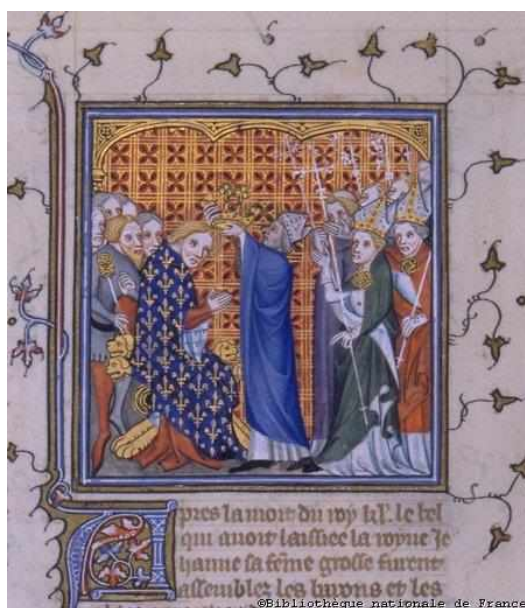 Apres la mort du roy kl. le bel
qui avoit laissiee la royne Je
hanne sa feme grosse furent
assemblez les barons et les
©Bibliothèque nationale de France